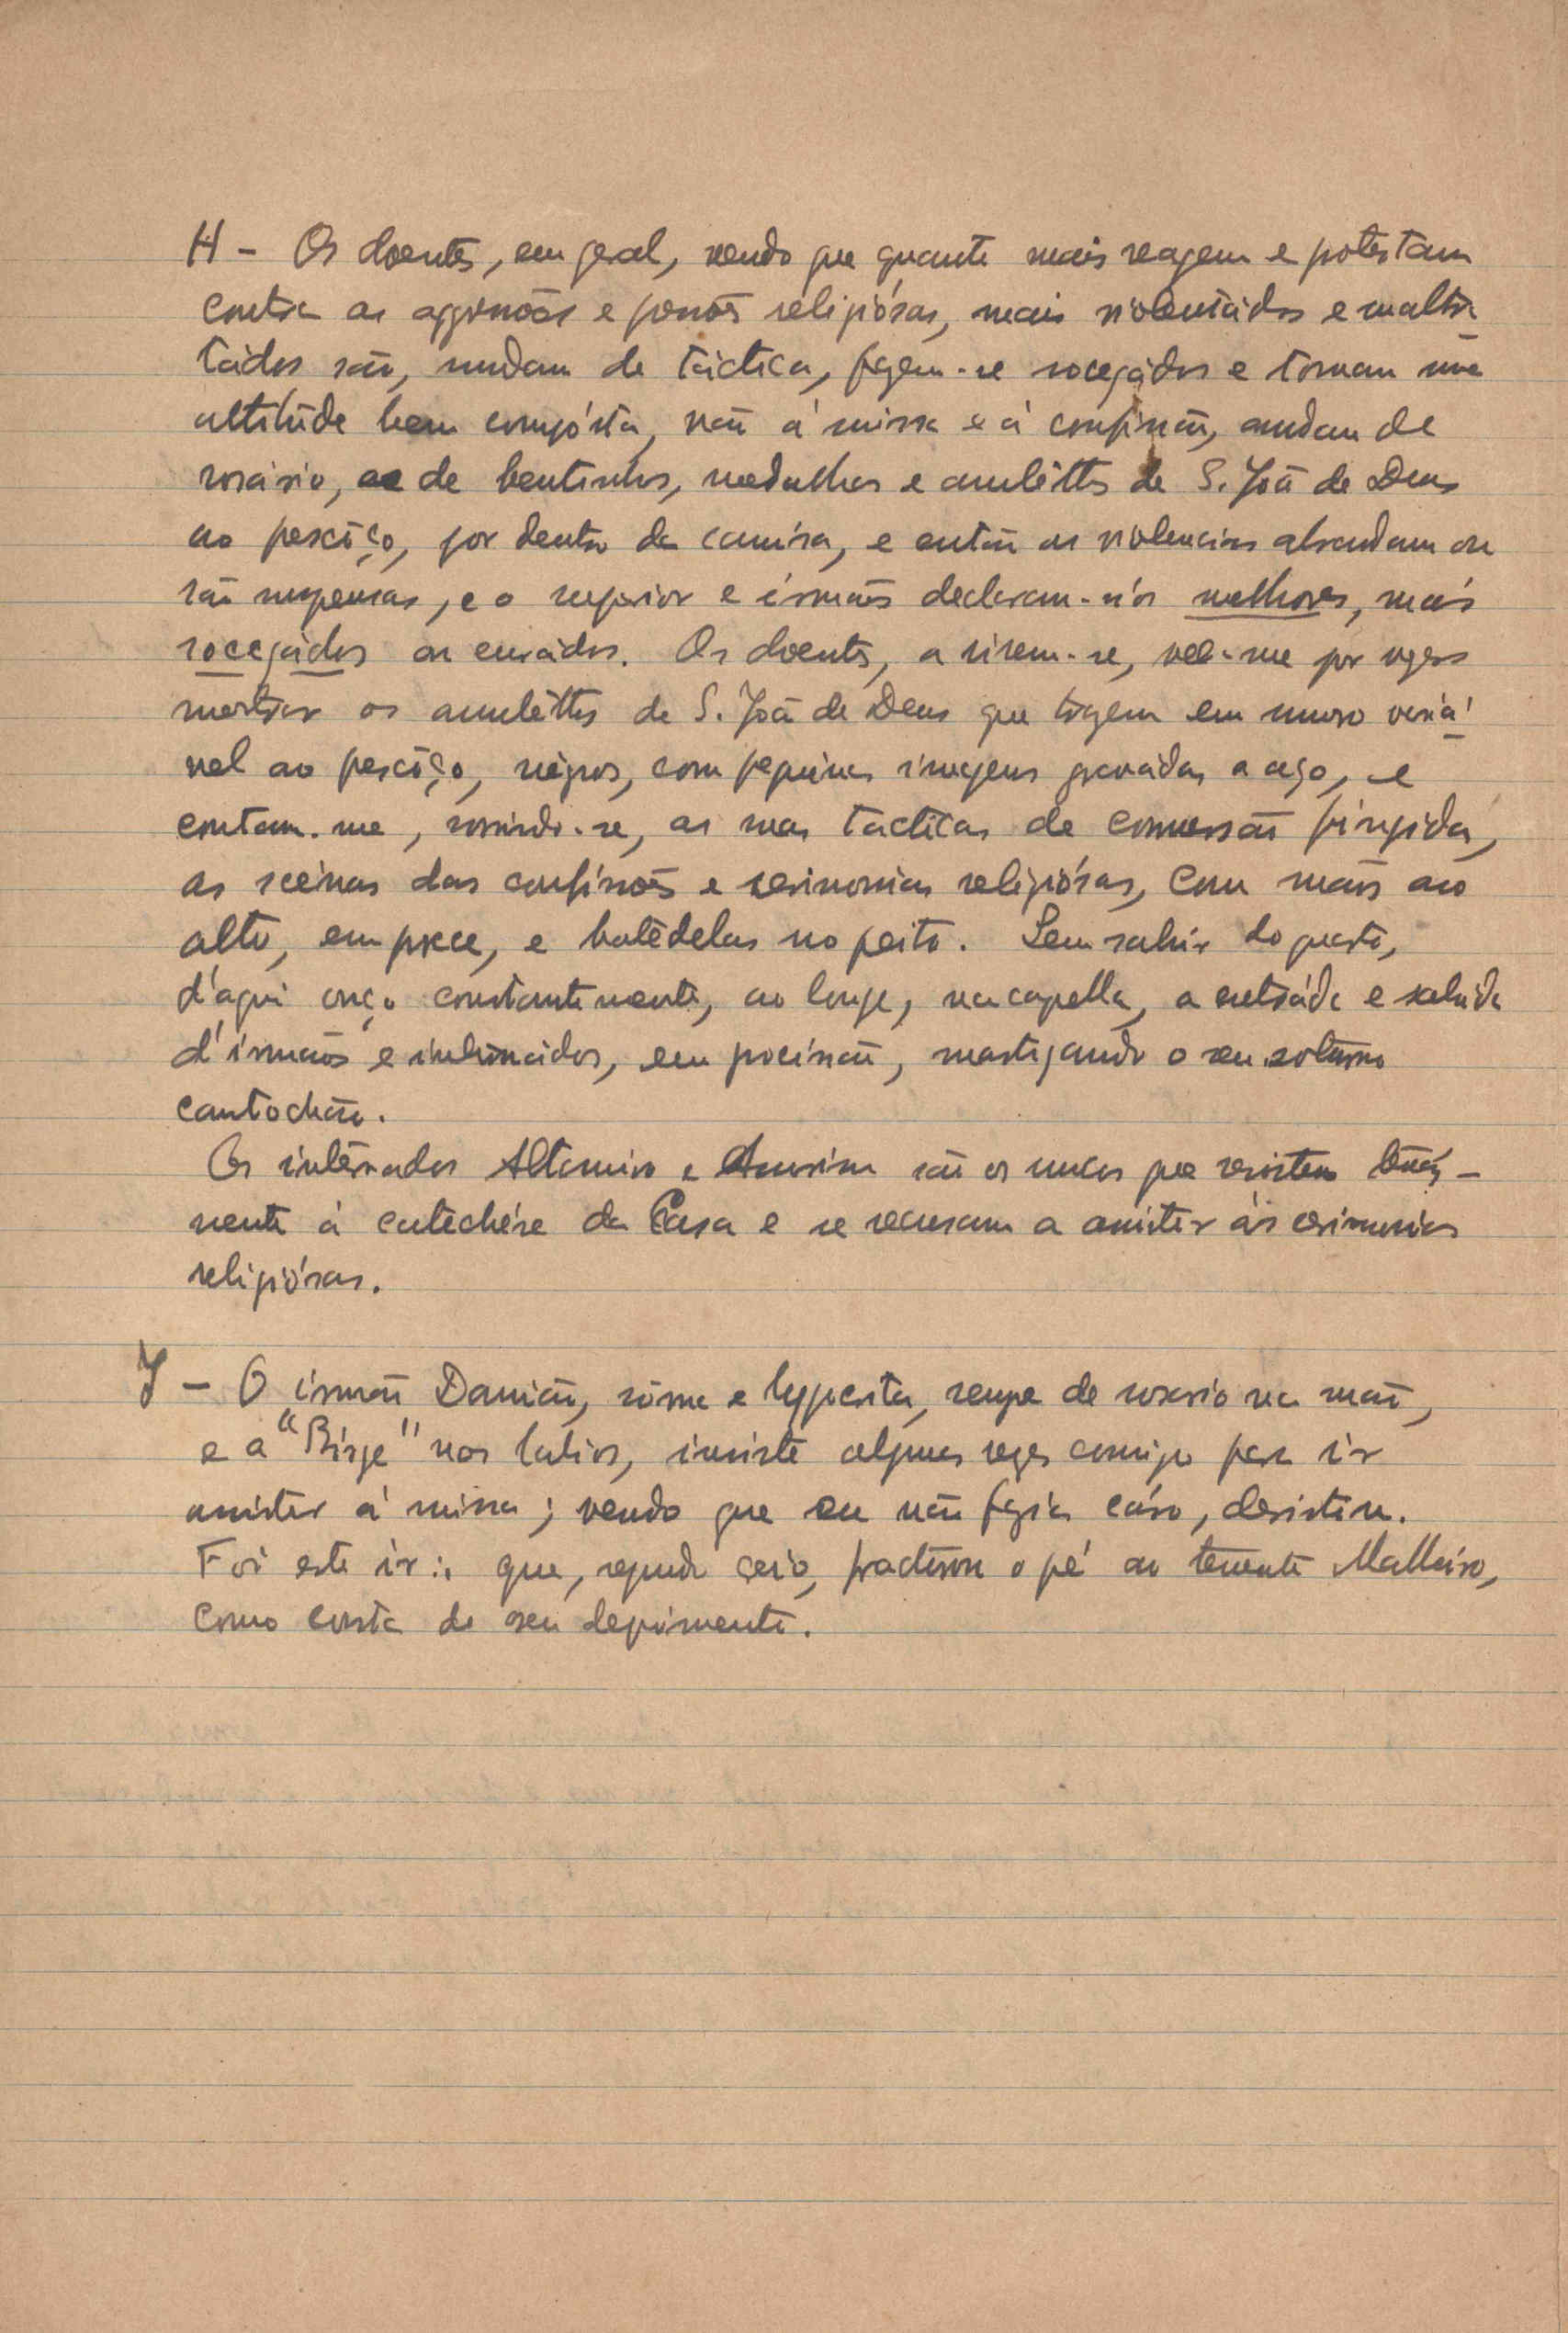 H – Os doentes, em geral, vendo que quanto mais reagem e protestam
contra as oppressões e pressões religiósas, mais violentádos e maltra-
tádos são, mudam de táctica, fazem-se socegádos e tomam uma
attitúde bem compósta, vão á missa e á confissão, andam de
rosário, de bentinhos, medalhas e amulêttos de S. João de Deus
ao pescôço, por dentro da camisa, e então as violencias abrandam ou
são suspensas, e o superior e irmãos declaram-n'os melhores, mais
socegádos ou curádos. Os doentes, a rirem-se, veem-me por vezes
mostrar os amulêttos de S. João de Deus que trazem em numero variá-
vel ao pescôço, négros, com pequenas imagens gravadas a aço, e
contam-me, sorrindo-se, as suas tacticas de conversão fingida,
as scênas das confissões e cerimonias religiósas, com mãos ao
alto, em prece, e batêdelas no peito. Sem sahir do quarto,
d'aqui ouço constantemente, ao longe, na capella, a entráda e sahida
d'irmãos e internádos, em procissão, mastigando o seu soturno
cantochão.
Os intérnados Altamiro e Amorim são os unicos que resistem tenáz-
mente á catechése da Casa e se recusam a assistir ás cerimonias
religiósas.
J – O irmão Damião, sôrna e hyppcrita, sempre de rosario na mão,
e a "Birge" nos labios, insiste algumas vezes comigo para ir
assistir á missa; vendo que eu não fazia cáso, desistiu.
Foi este ir∴ que, segundo creio, fracturou o pé ao tenente Malheiro,
como consta do seu depoimento.